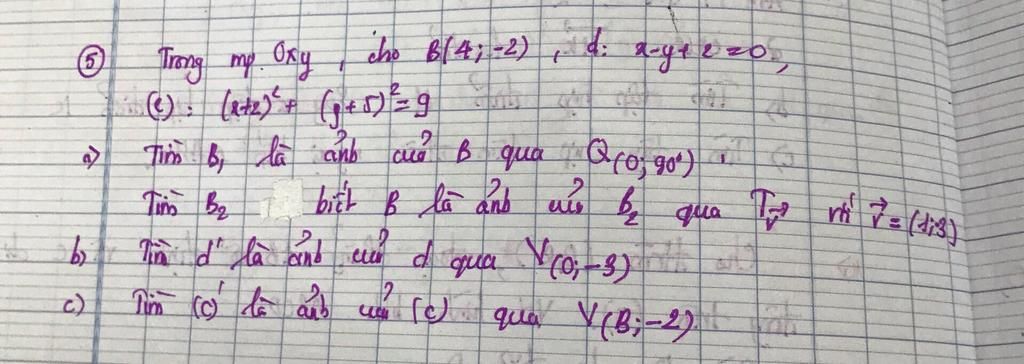 ⑤ Trong mp Oxy, cho B(4;-2), d: x-y+2=0,
(C): (x+2)²+ (y+5)²=9
a) Tìm B₁ là ảnh của B qua Q(O;90°).
Tìm B₂ biết B là ảnh của B₂ qua T_v⃗ với v⃗=(1;3)
b) Tìm d' là ảnh của d qua V(O;-3)
c) Tìm (C)' là ảnh của (C) qua V(B;-2)